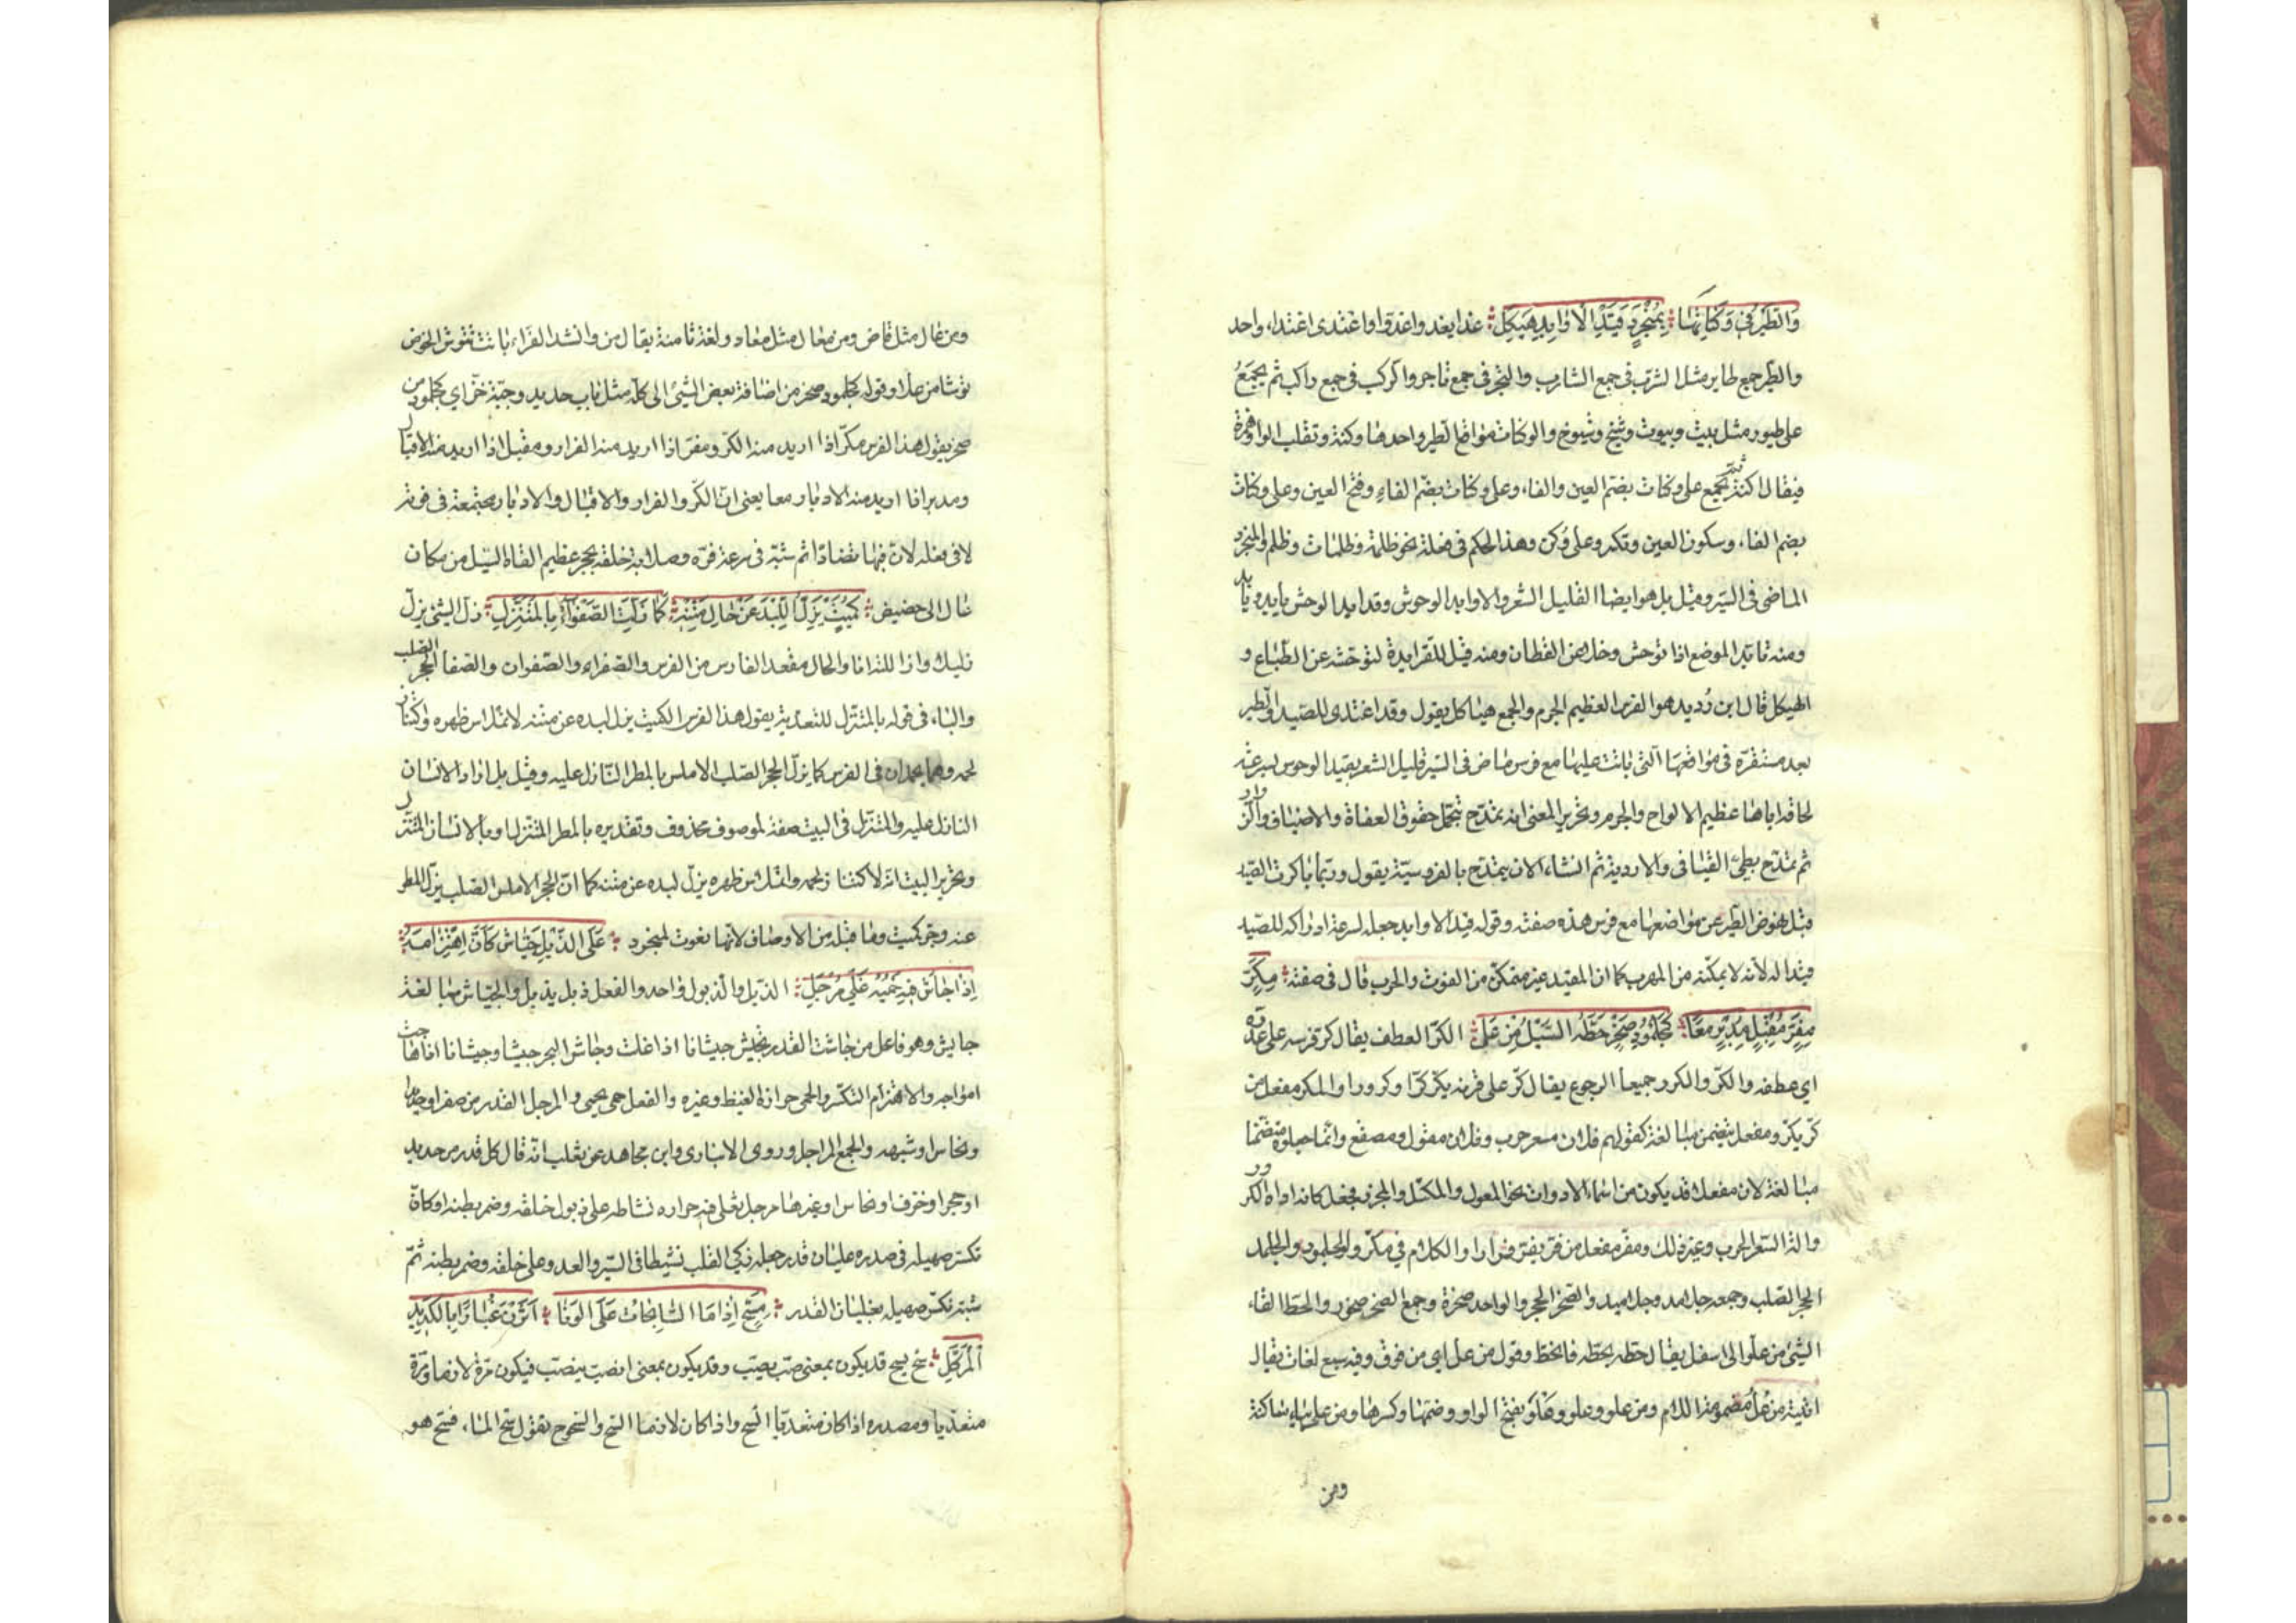 والطير في وكناتها بمنجرد قيد الاوابد هيكل غدا يغدو غدوا واغتدى اغتداء واحد
والطير جمع طاير مثل الشرب في جمع الشارب والتجر في جمع تاجر والركب في جمع راكب ثم يجمع
على طيور مثل بيت وبيوت وشيخ وشيوخ والوكنات مواقع الطير واحدها وكنة وتقلب الواو همزة
فيقال اكنة ثم يجمع على وكنات بضم العين والفاء وعلى وكنات بضم الفاء وفتح العين وعلى وكنات
بضم الفاء وسكون العين وتكسر وعلى وُكن وهذا الحكم في فعلة نحو ظلمة وظلمات وظلم والمنجرد
الماضي في السير وقيل بل هو ايضا القليل الشعر والاوابد الوحوش وقد ابد الوحش يابد ويابد
ومنه تابد الموضع اذا توحش وخلا من القطان ومنه قيل للقر ابدة لتوحشه عن الطباع و
الهيكل قال ابن دُريد هو الفرس العظيم الجرم والجمع هياكل يقول وقد اغتدى للصيد والطير
بعد مستقرة في مواقعها التي باتت عليها مع فرس ماض في السير قليل الشعر يقيد الوحوش بسرعته
لحاقه اياها عظيم الالواح والجرم وتحرير المعنى انه يمتدح بتحمل حقوق العفاة والاضياف والزوار
ثم تمتدح بطي الفيافي والاودية ثم انشاء الان يمتدح بالفروسية يقول وربما باكرت الصيد
قبل نهوض الطير عن مواضعها مع فرس هذه صفته وقوله قيد الاوابد جعله لسرعة ادراكه للصيد
قيدا له لانه لا يمكنه من المهرب كما ان المقيد غير متمكن من الفوت والهرب قال في صفته مِكَرّ
مِفَرّ مُقبل مدبر معا كجلمود صخر حطه السيل من عل الكر العطف يقال كر فرسه على عدوه
اي عطفه والكر والكرور جميعا الرجوع يقال كر على قرنه يكر كرا وكرورا والمكر مفعل من
كر يكر ومفعل يتضمن مبالغة كقولهم فلان مسعر حرب وفلان مقول ومصقع وانما جعلوه متضمنا
مبالغة لان مفعلا قد يكون من اسماء الادوات نحو المعول والمكتل والمخرز فجعل كانه اداة الكرور
والة السعر الحرب وغير ذلك ومفر مفعل من فر يفر فرارا والكلام في مكر والجلمود والجلمد
الحجر الصلب وجمعه جلامد وجلاميد والصخر الحجر والواحد صخرة وجمع الصخر صخور والحط القاء
الشئ من علو الى اسفل يقال حطه يحطه فانحط وقوله من عل اي من فوق وفيه سبع لغات يقال
اتيته من عل مضمومة اللام ومن علو وعلو وعلو بفتح الواو وضمها وكسرها ومن علي بياء ساكنة
ومن
ومن عال مثل قاض ومن معال مثل معاد ولغة ثامنة يقال من وانشد الفراء باتت تنوش الحوض
نوشا من علا وقوله كجلمود صخر من اضافة بعض الشئ الى كله مثل باب حديد وجبة خز اي كجلمود من
صخر يقول هذا الفرس مكر اذا اريد منه الكر ومفر اذا اريد منه الفرار ومقبل اذا اريد منه الاقبال
ومدبر اذا اريد منه الادبار معا يعني ان الكر والفرار والاقبال والادبار مجتمعة في قوته
لا في فعله لان فيها تضادا ثم شبه في سرعة مره وصلابة خلقه بحجر عظيم القاه السيل من مكان
عال الى حضيض كميت يزل اللبد عن حال متنه كما زلت الصفواء بالمتنزل زل الشئ يزل
زليلا وازاللته انا والحال مقعد الفارس من الفرس والصفواء والصفوان والصفا الحجر الصلب
والباء في قوله بالمتنزل للتعدية يقول هذا الفرس الكميت يزل لبده عن متنه لانملاس ظهره واكتناز
لحمه وهما يحمدان في الفرس كما يزل الحجر الصلب الاملس بالمطر النازل عليه وقيل بل اراد الانسان
النازل عليه والمتنزل في البيت صفة لموصوف محذوف وتقديره بالمطر المتنزل او بالانسان المتنزل
وتحرير البيت انه لاكتناز لحمه وانملاس ظهره يزل لبده عن متنه كما ان الحجر الاملس الصلب يزل المطر
عنه وجر كميت وما قبله من الاوصاف لانها نعوت لمنجرد على الذيل جياش كان اهتزامه
اذا جاش فيه حميه غلي مرجل الذبل والذبول واحد والفعل ذبل يذبل والجياش مبالغة
جايش وهو فاعل من جاشت القدر تجيش جيشانا اذا غلت وجاش البحر جيشا وجيشانا اذا هاجت
امواجه والاهتزام التكسر والحمى حرارة الغيظ وغيره والفعل حمى يحمى والمرجل القدر من صفر او حديد
ونحاس او شبهه والجمع المراجل وروى الانبارى وابن مجاهد عن ثعلب انه قال كل قدر من حديد
او حجر او خزف او نحاس او غيرها مرجل يغلى فيه حراره نشاطه على ذبول خلقه وضمر بطنه وكان
تكسر صهيله في صدره غليان قدر جعله ذكي القلب نشيطا في السير والعدو على خلقه وضمر بطنه ثم
شبه تكسر صهيله بغليان القدر مِسَحّ اذا ما السابحات على الونا اثرن غبارا بالكديد
المركل سح يسح قد يكون بمعنى صب يصب وقد يكون بمعنى انصب ينصب فيكون مرة لازما ومرة
متعديا ومصدره اذا كان متعديا السح واذا كان لازما السح والسحوح يقول سح الماء فسح هو